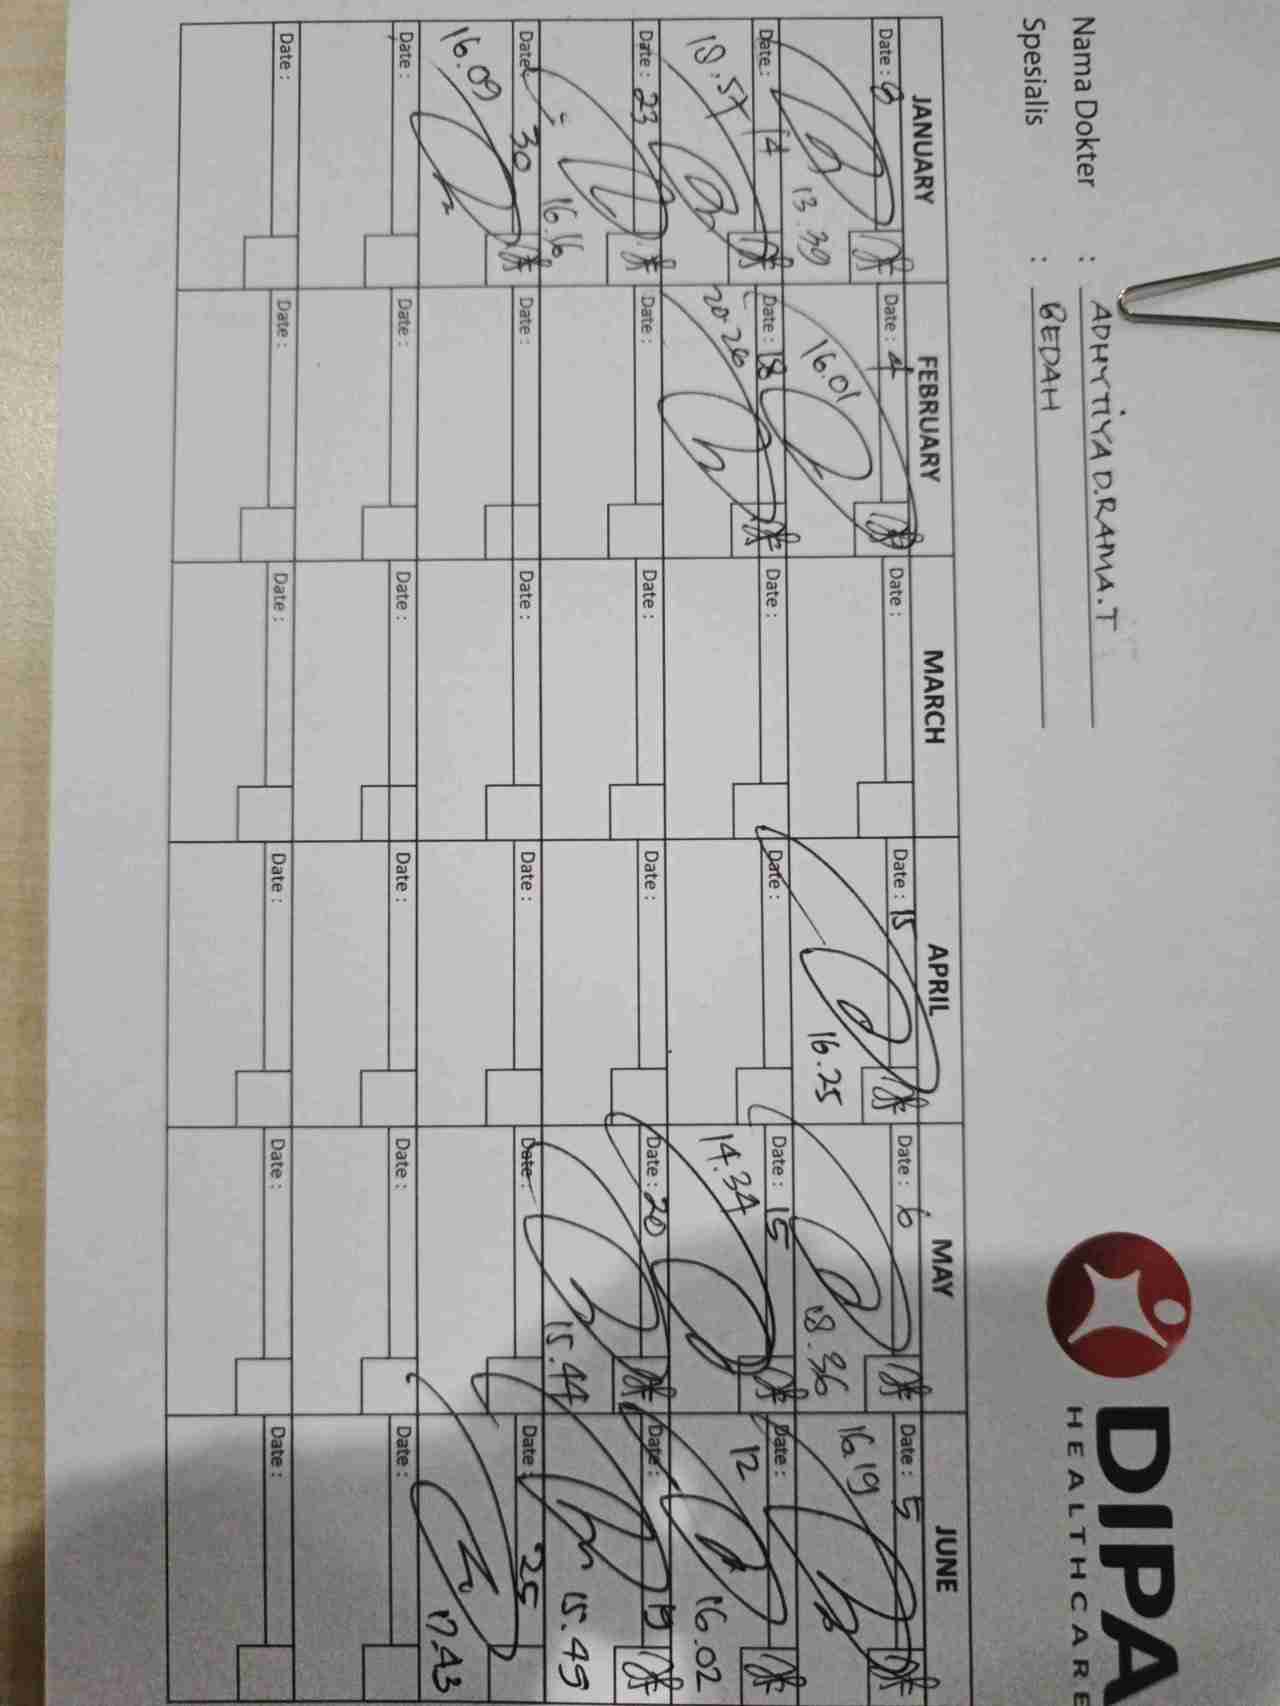 DIPA
HEALTHCARE
Nama Dokter : ADHYTIYA D.RAMA.T
Spesialis : BEDAH
JANUARY FEBRUARY MARCH APRIL MAY JUNE
Date : 8 Date : 4 Date : Date : 15 Date : 6 Date : 5
13.39 16.01 16.25 18.36 16.19
Date : 14 Date : 18 Date : Date : Date : 15 Date : 12
18.57 20.26 14.34 16.02
Date : 23 Date : Date : Date : Date : 20 Date : 19
16.16 15.44 15.49
Date : 30 Date : Date : Date : Date : Date : 25
16.09 17.43
Date : Date : Date : Date : Date : Date :
Date : Date : Date : Date : Date : Date :